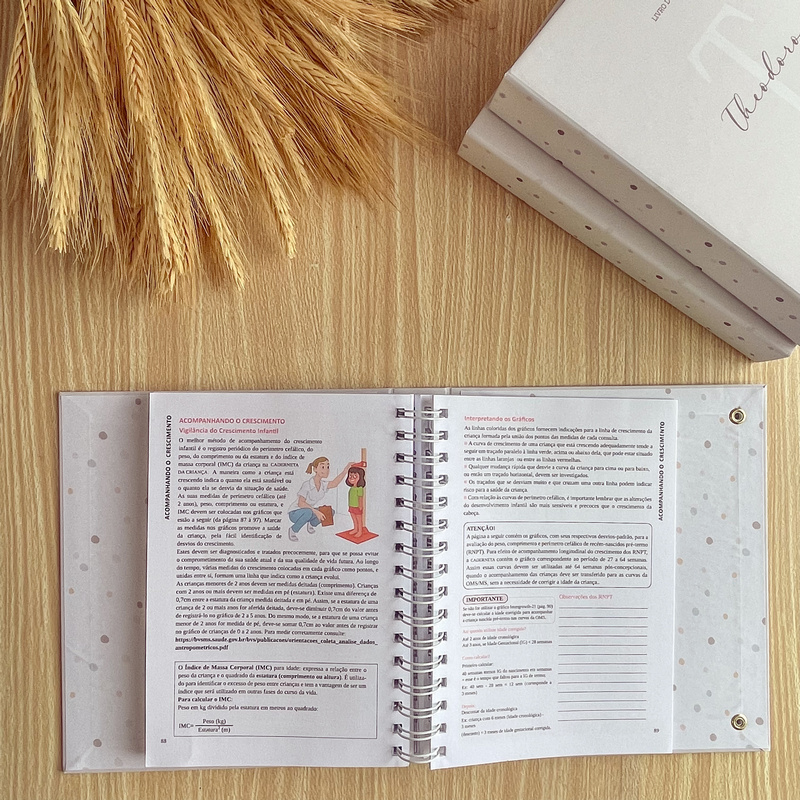 LIVRO D
T
Theodoro
ACOMPANHANDO O CRESCIMENTO
ACOMPANHANDO O CRESCIMENTO
Vigilância do Crescimento Infantil
O melhor método de acompanhamento do crescimento
infantil é o registro periódico do perímetro cefálico, do
peso, do comprimento ou da estatura e do índice de
massa corporal (IMC) da criança na CADERNETA
DA CRIANÇA. A maneira como a criança está
crescendo indica o quanto ela está saudável ou
o quanto ela se desvia da situação de saúde.
As suas medidas de perímetro cefálico (até
2 anos), peso, comprimento ou estatura, e
IMC devem ser colocadas nos gráficos que
estão a seguir (da página 87 à 97). Marcar
as medidas nos gráficos promove a saúde
da criança, pela fácil identificação de
desvios do crescimento.
Esses devem ser diagnosticados e tratados precocemente, para que se possa evitar
o comprometimento da sua saúde atual e da sua qualidade de vida futura. Ao longo
do tempo, várias medidas do crescimento colocadas em cada gráfico como pontos, e
unidas entre si, formam uma linha que indica como a criança evolui.
As crianças menores de 2 anos devem ser medidas deitadas (comprimento). Crianças
com 2 anos ou mais devem ser medidas em pé (estatura). Existe uma diferença de
0,7cm entre a estatura da criança medida deitada e em pé. Assim, se a estatura de uma
criança de 2 ou mais anos for aferida deitada, deve-se diminuir 0,7cm do valor antes
de registrá-lo no gráfico de 2 a 5 anos. Do mesmo modo, se a estatura de uma criança
menor de 2 anos for medida de pé, deve-se somar 0,7cm ao valor antes de registrar
no gráfico de crianças de 0 a 2 anos. Para medir corretamente consulte:
https://bvsms.saude.gov.br/bvs/publicacoes/orientacoes_coleta_analise_dados_
antropometricos.pdf
O Índice de Massa Corporal (IMC) para idade: expressa a relação entre o
peso da criança e o quadrado da estatura (comprimento ou altura). É utiliza-
do para identificar o excesso de peso entre crianças e tem a vantagem de ser um
índice que será utilizado em outras fases do curso da vida.
Para calcular o IMC:
Peso em kg dividido pela estatura em metros ao quadrado:
IMC= Peso (kg)
Estatura² (m)
88
Interpretando os Gráficos
As linhas coloridas dos gráficos fornecem indicações para a linha de crescimento da
criança formada pela união dos pontos das medidas de cada consulta.
A curva de crescimento de uma criança que está crescendo adequadamente tende a
seguir um traçado paralelo à linha verde, acima ou abaixo dela, que pode estar situado
entre as linhas laranjas ou entre as linhas vermelhas.
Qualquer mudança rápida que desvie a curva da criança para cima ou para baixo,
ou então um traçado horizontal, devem ser investigados.
Os traçados que se desviam muito e que cruzam uma outra linha podem indicar
risco para a saúde da criança.
Com relação às curvas de perímetro cefálico, é importante lembrar que as alterações
do desenvolvimento infantil são mais sensíveis e precoces que o crescimento da
cabeça.
ATENÇÃO!
A página a seguir contém os gráficos, com seus respectivos desvios-padrão, para a
avaliação do peso, comprimento e perímetro cefálico de recém-nascidos pré-termo
(RNPT). Para efeito de acompanhamento longitudinal do crescimento dos RNPT,
a CADERNETA contém o gráfico correspondente ao período de 27 a 64 semanas.
Assim essas curvas devem ser utilizadas até 64 semanas pós-concepcionais,
quando o acompanhamento das crianças deve ser transferido para as curvas da
OMS/MS, sem a necessidade de corrigir a idade da criança.
IMPORTANTE
Observações do RNPT
Até quando utilizar idade corrigida?
Até 2 anos de idade cronológica
Até 3 anos, se Idade Gestacional (IG) < 28 semanas
Como calcular?
Primeiro calcular:
Depois:
Descontar da idade cronológica
89
ACOMPANHANDO O CRESCIMENTO